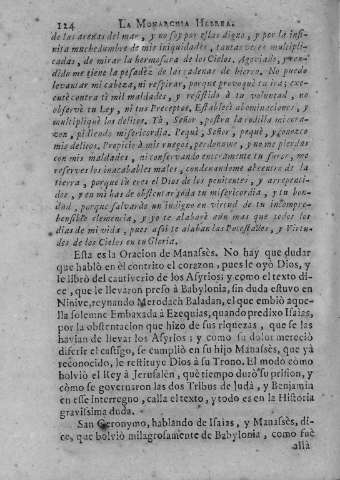 124 LA MONARCHIA HEBREA.
de las arenas del mar, y no soy por ellas digno, y por la infi-
nita muchedumbre de mis iniquidades, tantas veces multipli-
cadas, de mirar la hermosura de los Cielos. Agoviado, y ren-
dido me tiene la pesadèz de las cadenas de hierro. No puedo
levantar mi cabeza, ni respirar, porque provoquè tu ira; exe-
cutè contra ti mil maldades, y resistido à tu voluntad, no
observè tu Ley, ni tus Preceptos. Establecì abominaciones, y
multipliquè los delitos. Tà, Señor, postra la rodilla mi cora-
zon, pidiendo misericordia. Pequè, Señor, pequè, y conozco
mis delitos. Propicio à mis ruegos, perdoname, y no me pierdas
con mis maldades, ni conservando enteramente tu furor, me
reserves los inacabables males, condenandome al centro de la
tierra, porque tù eres el Dios de los penitentes, y arrepenti-
dos, y en mì has de obstentar toda tu misericordia, y tu bon-
dad, porque salvaràs un indigno en virtud de tu incompre-
hensible clemencia, y yo te alabarè aun mas que todos los
dias de mi vida, pues assi te alaban las Potestades, y Virtu-
des de los Cielos en tu Gloria.
Esta es la Oracion de Manassès. No hay que dudar
que hablò en èl contrito el corazon, pues le oyò Dios, y
le librò del cautiverio de los Asyrios: y como el texto di-
ce, que le llevaron preso à Babylonia, sin duda estuvo en
Ninive, reynando Merodach Baladan, el que embiò aque-
lla solemne Embaxada à Ezequias, quando predixo Isaias,
por la obstentacion que hizo de sus riquezas, que se las
havian de llevar los Asyrios; y como su dolor mereciò
diferir el castigo, se cumpliò en su hijo Manassès, que yà
reconocido, le restituye Dios à su Trono. El modo còmo
bolviò el Rey à Jerusalèn, què tiempo durò su prision, y
còmo se governaron las dos Tribus de Judà, y Benjamin
en esse interregno, calla el texto, y todo es en la Historia
gravissima duda.
San Geronymo, hablando de Isaias, y Manassès, di-
ce, que bolviò milagrosamente de Babylonia, como fuè
allà